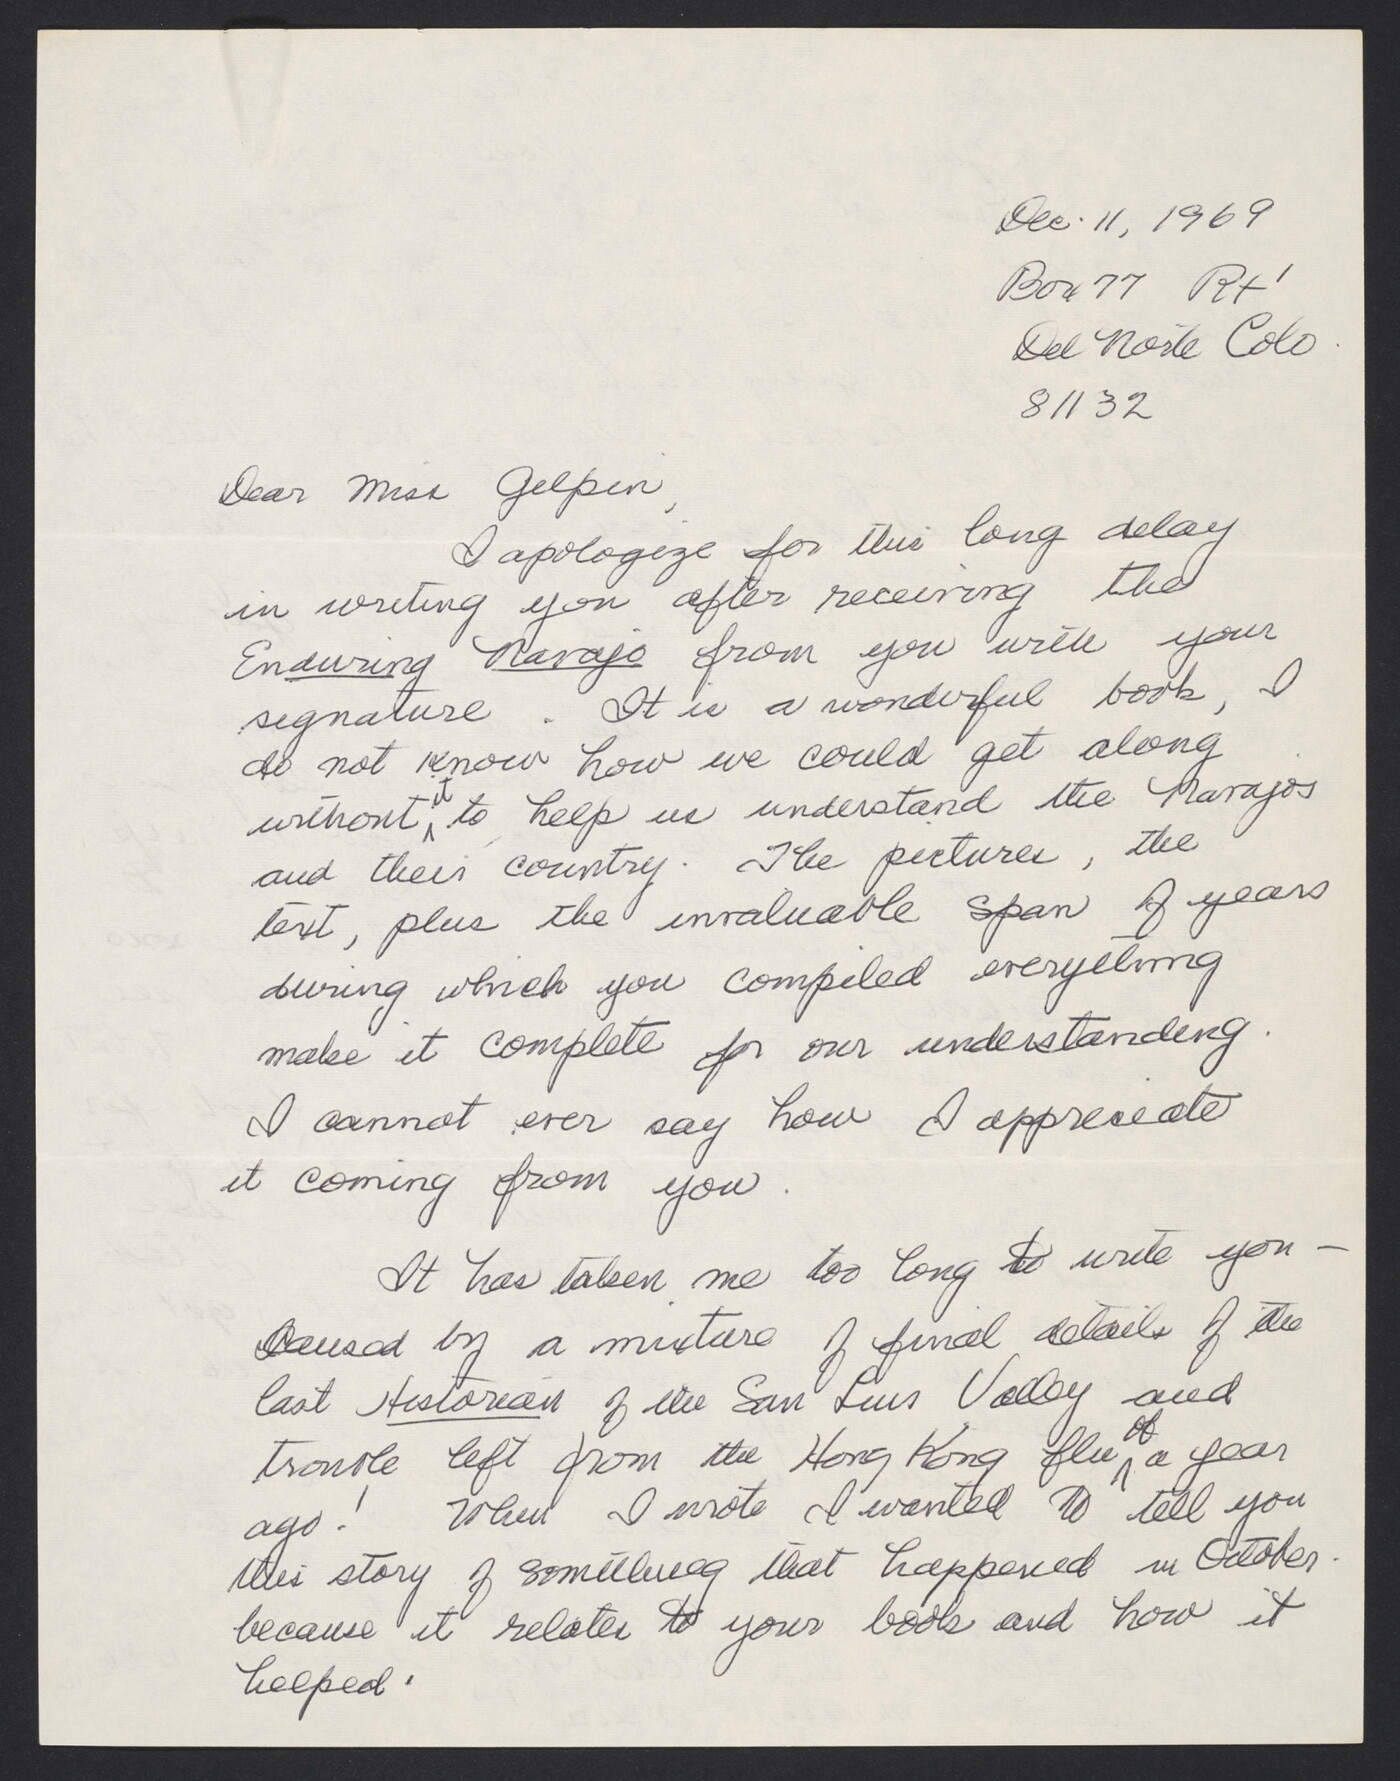 Dec. 11, 1969
Box 77 Rt 1
Del Norte Colo.
81132
Dear Miss Gelpin,
I apologize for this long delay
in writing you after receiving the
Enduring Navajo from you with your
signature. It is a wonderful book, I
do not know how we could get along
without it to help us understand the Navajos
and their country. The pictures, the
text, plus the invaluable span of years
during which you compiled everything
make it complete for our understanding.
I cannot ever say how I appreciate
it coming from you.
It has taken me too long to write you —
caused by a mixture of final details of the
last Historian of the San Luis Valley and
trouble left from the Hong Kong flu of a year
ago! When I wrote I wanted to tell you
this story of something that happened in October.
because it relates to your book and how it
helped.